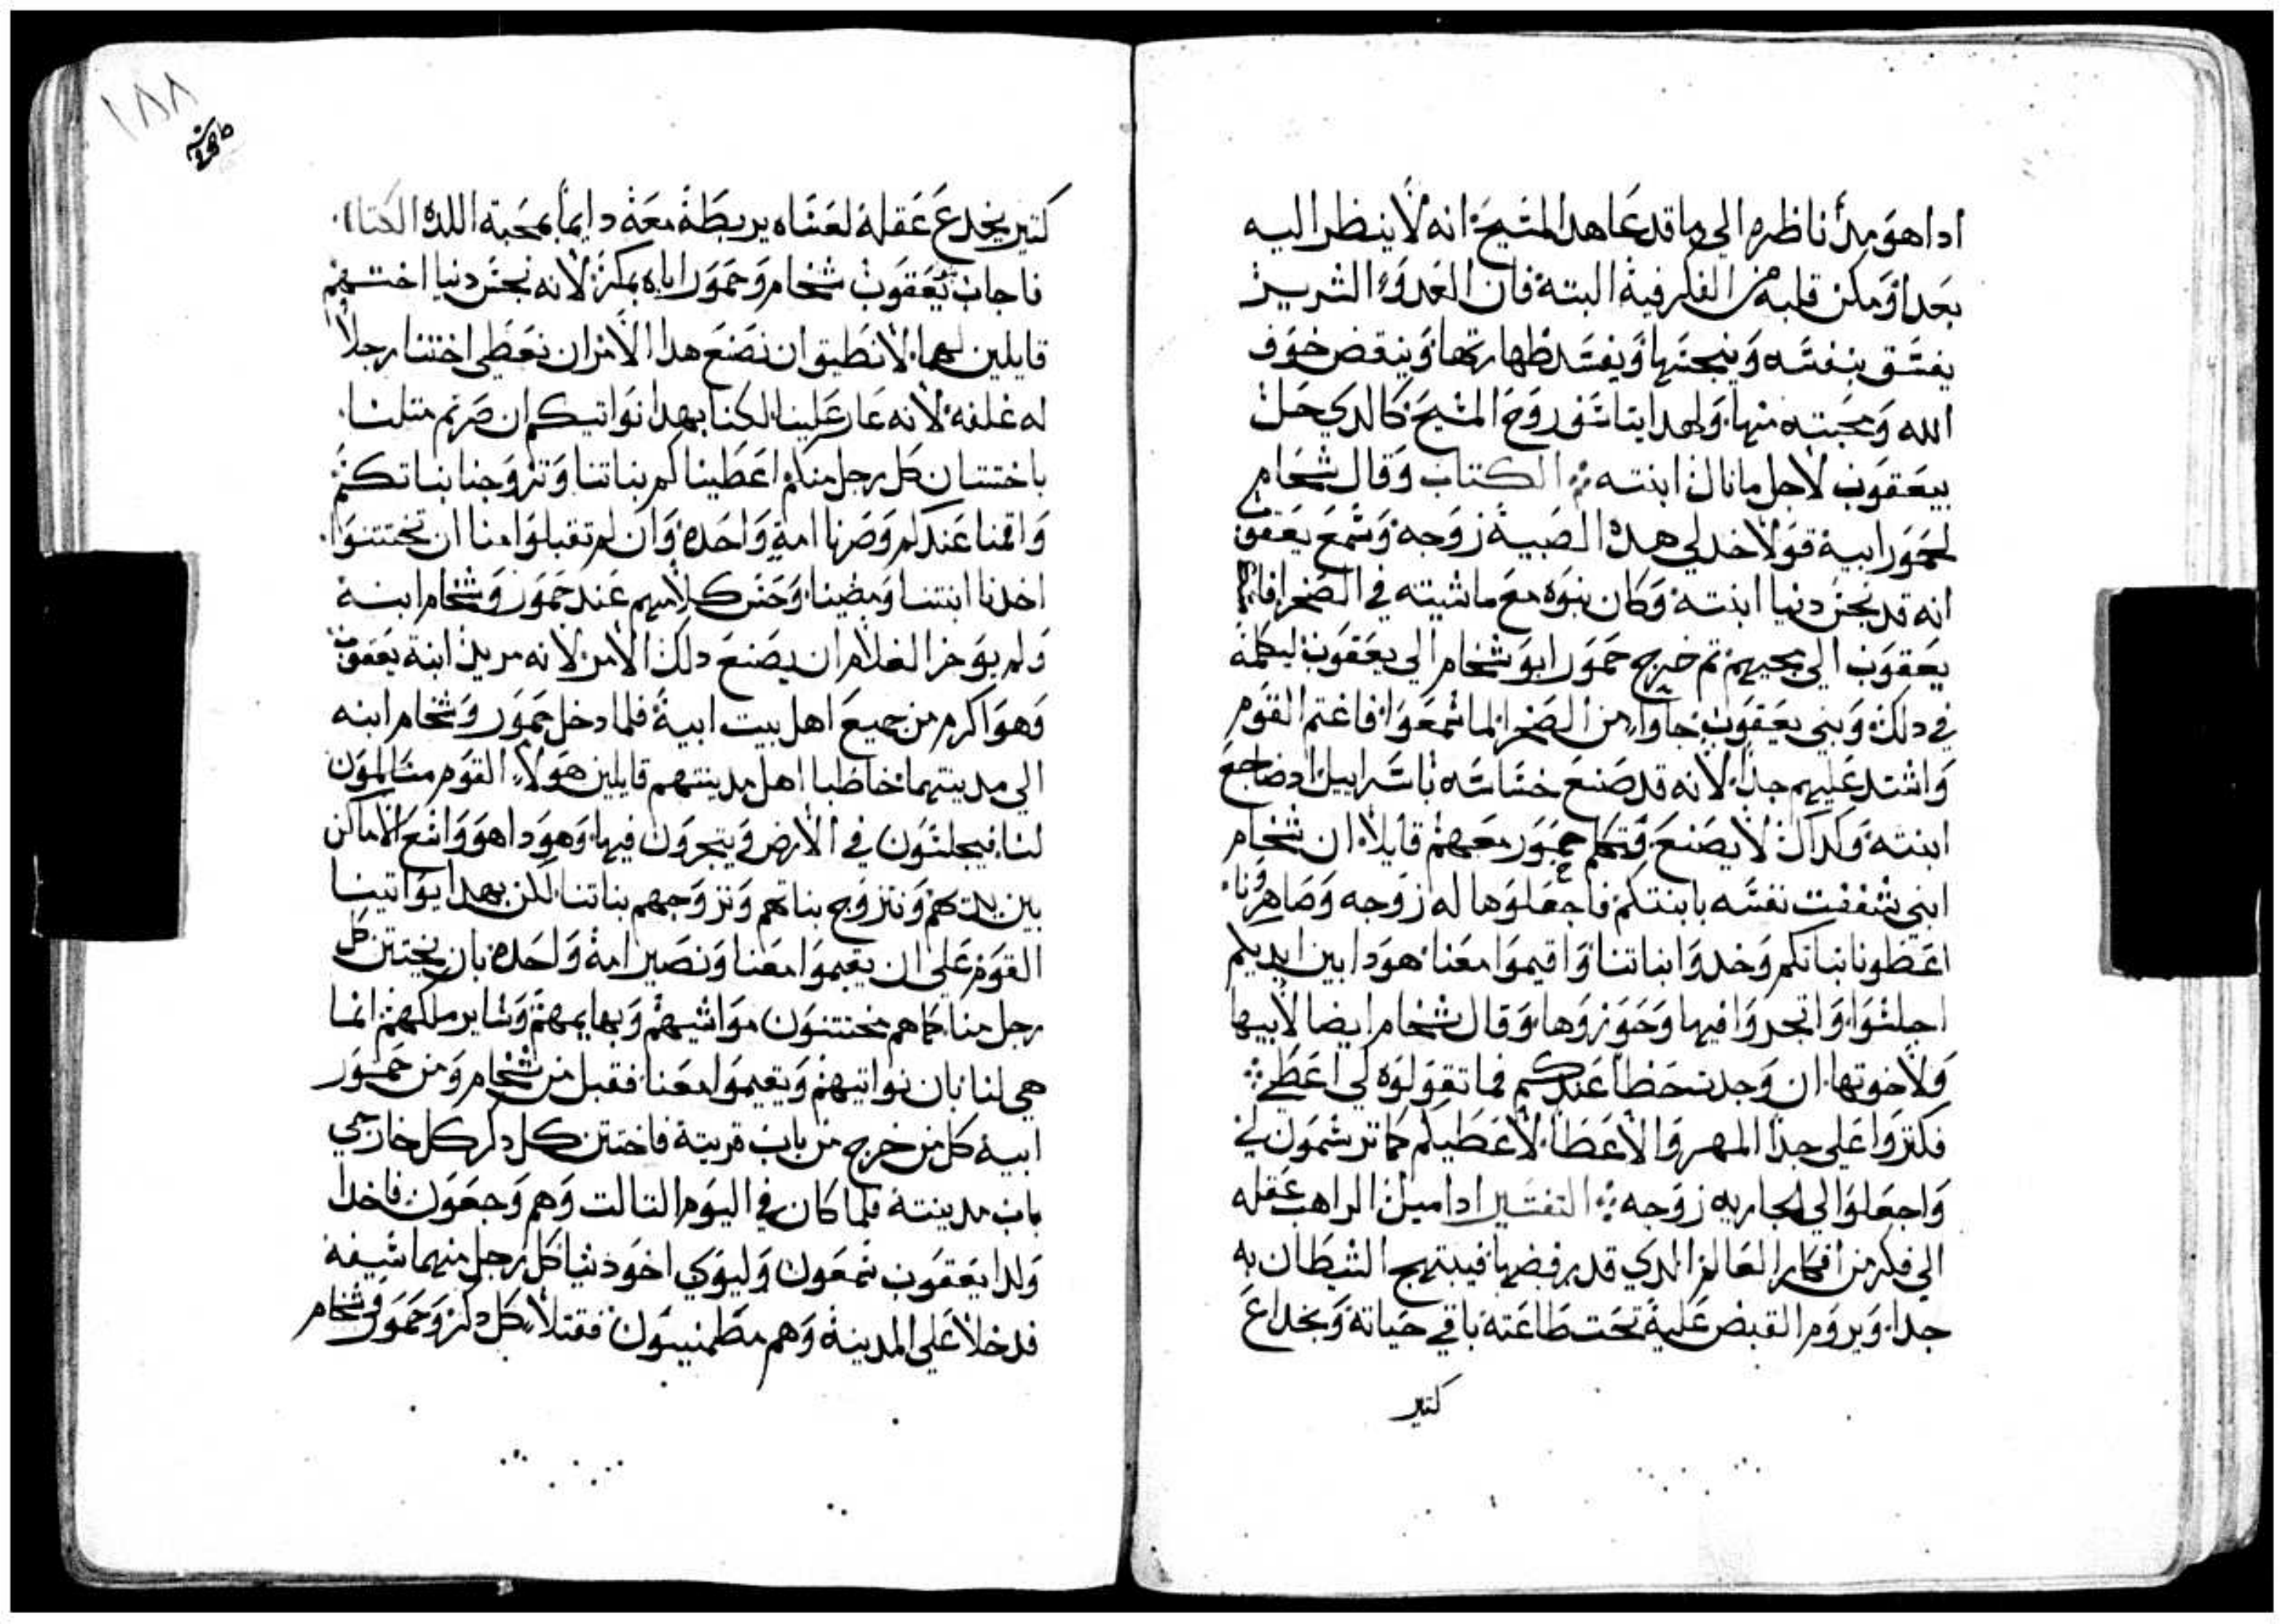 ادا هو مد ناظره الي ما قد عاهد المسيح انه لا ينظر اليه
بعدا ومكن قلبه من الفكر فيه البته فان العدو الشرير
يفسق بنفسه وينجسها ويفسد طهارتها وينقض خوف
الله ومحبته منها ولهدا يتاسف روح المسيح كالدي حل
بيعقوب لاجل ما نال ابنته الكتاب وقال شخام
لحمور ابيه قولا خد لي هده الصبية زوجه وسمع يعقوب
انه قد نجس دينا ابنته وكان بنوه مع ماشيته في الصحرا
يعقوب الي مجيهم تم خرج حمور ابو شخام الي يعقوب ليكلمه
في دلك وبني يعقوب جاوا من الصحرا لما سمعوا فاغتم القوم
واشتد عليهم جدا لانه قد صنع خساسه باسراييل اد ضاجع
ابنته وكداك لا يصنع وتكلم حمور معهم قايلا ان شخام
ابني شغفت نفسه بابنتكم فاجعلوها له زوجه وصاهرونا
اعطونا بناتكم وخدوا بناتنا واقيموا معنا هودا بين ايديكم
اجلسوا واتجروا فيها وحوزوها وقال شخام ايضا لابيها
ولاخوتها ان وجدت حظا عندكم فما تقولوه لي اعطي
فكتروا علي جدا المهر والاعطا لاعطيكم كما ترسمون لي
واجعلوا لي الجاريه زوجه التفسير ادا اميل الراهب عقله
الي فكر من افكار العالم الدي قد رفضها فيبتهج الشيطان به
جدا ويروم القبض عليه تحت طاعته باقي حياته وبخداع
كتير
١٨٨
كتير يخدع عقله لعساه يربطه معه دايما بمحبة اللده الكتاب
فاجاب بني يعقوب شخام وحمور اباه بمكر لانه نجس دنيا اختهم
قايلين لهما لا نطيق ان نصنع هدا الامر ان نعطي اختنا رجلا
له غلفه لانه عار علينا لكنا بهدا نواتيكم ان صرتم متلنا
باختتان كل رجل منكم اعطيناكم بناتنا وتزوجنا بناتكم
واقمنا عندكم وصرنا امة واحده وان لم تقبلوا منا ان تختتنوا
اخدنا ابنتنا ومضينا وحسن كلامهم عند حمور وشخام ابنه
ولم يوخر الغلام ان يصنع دلك الامر لانه مريد ابنة يعقوب
وهو اكرم من جميع اهل بيت ابيه فلما دخل حمور وشخام ابنه
الي مدينتهما خاطبا اهل مدينتهم قايلين هولا القوم مسالمون
لنا فيجلسون في الارض ويتجرون فيها وهودا هو واسع الاماكن
بين يديهم ونتزوج بناتهم ونزوجهم بناتنا لكن بهدا يواتينا
القوم علي ان يقيموا معنا ونصير امة واحده بان يختتن كل
رجل منا كما هم مختتنون مواشيهم وبهايمهم وساير ملكهم انما
هي لنا بان نواتيهم ويقيموا معنا فقبل من شخام ومن حمور
ابيه كل من خرج من باب قريته فاختتن كل دكر كل خارجي
باب مدينته فلما كان في اليوم التالت وهم وجعون فاخدا
ولدا يعقوب شمعون وليوي اخو دنيا كل رجل منهما سيفه
فدخلا علي المدينة وهم مطمنيون فقتلا كل دكر وحمور وشخام